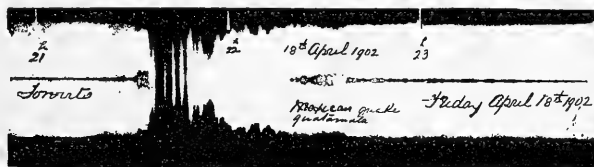 h
21
h
22
18th April 1902
h
23
Toronto
Mexican quake
guatamala
Friday April 18th 1902